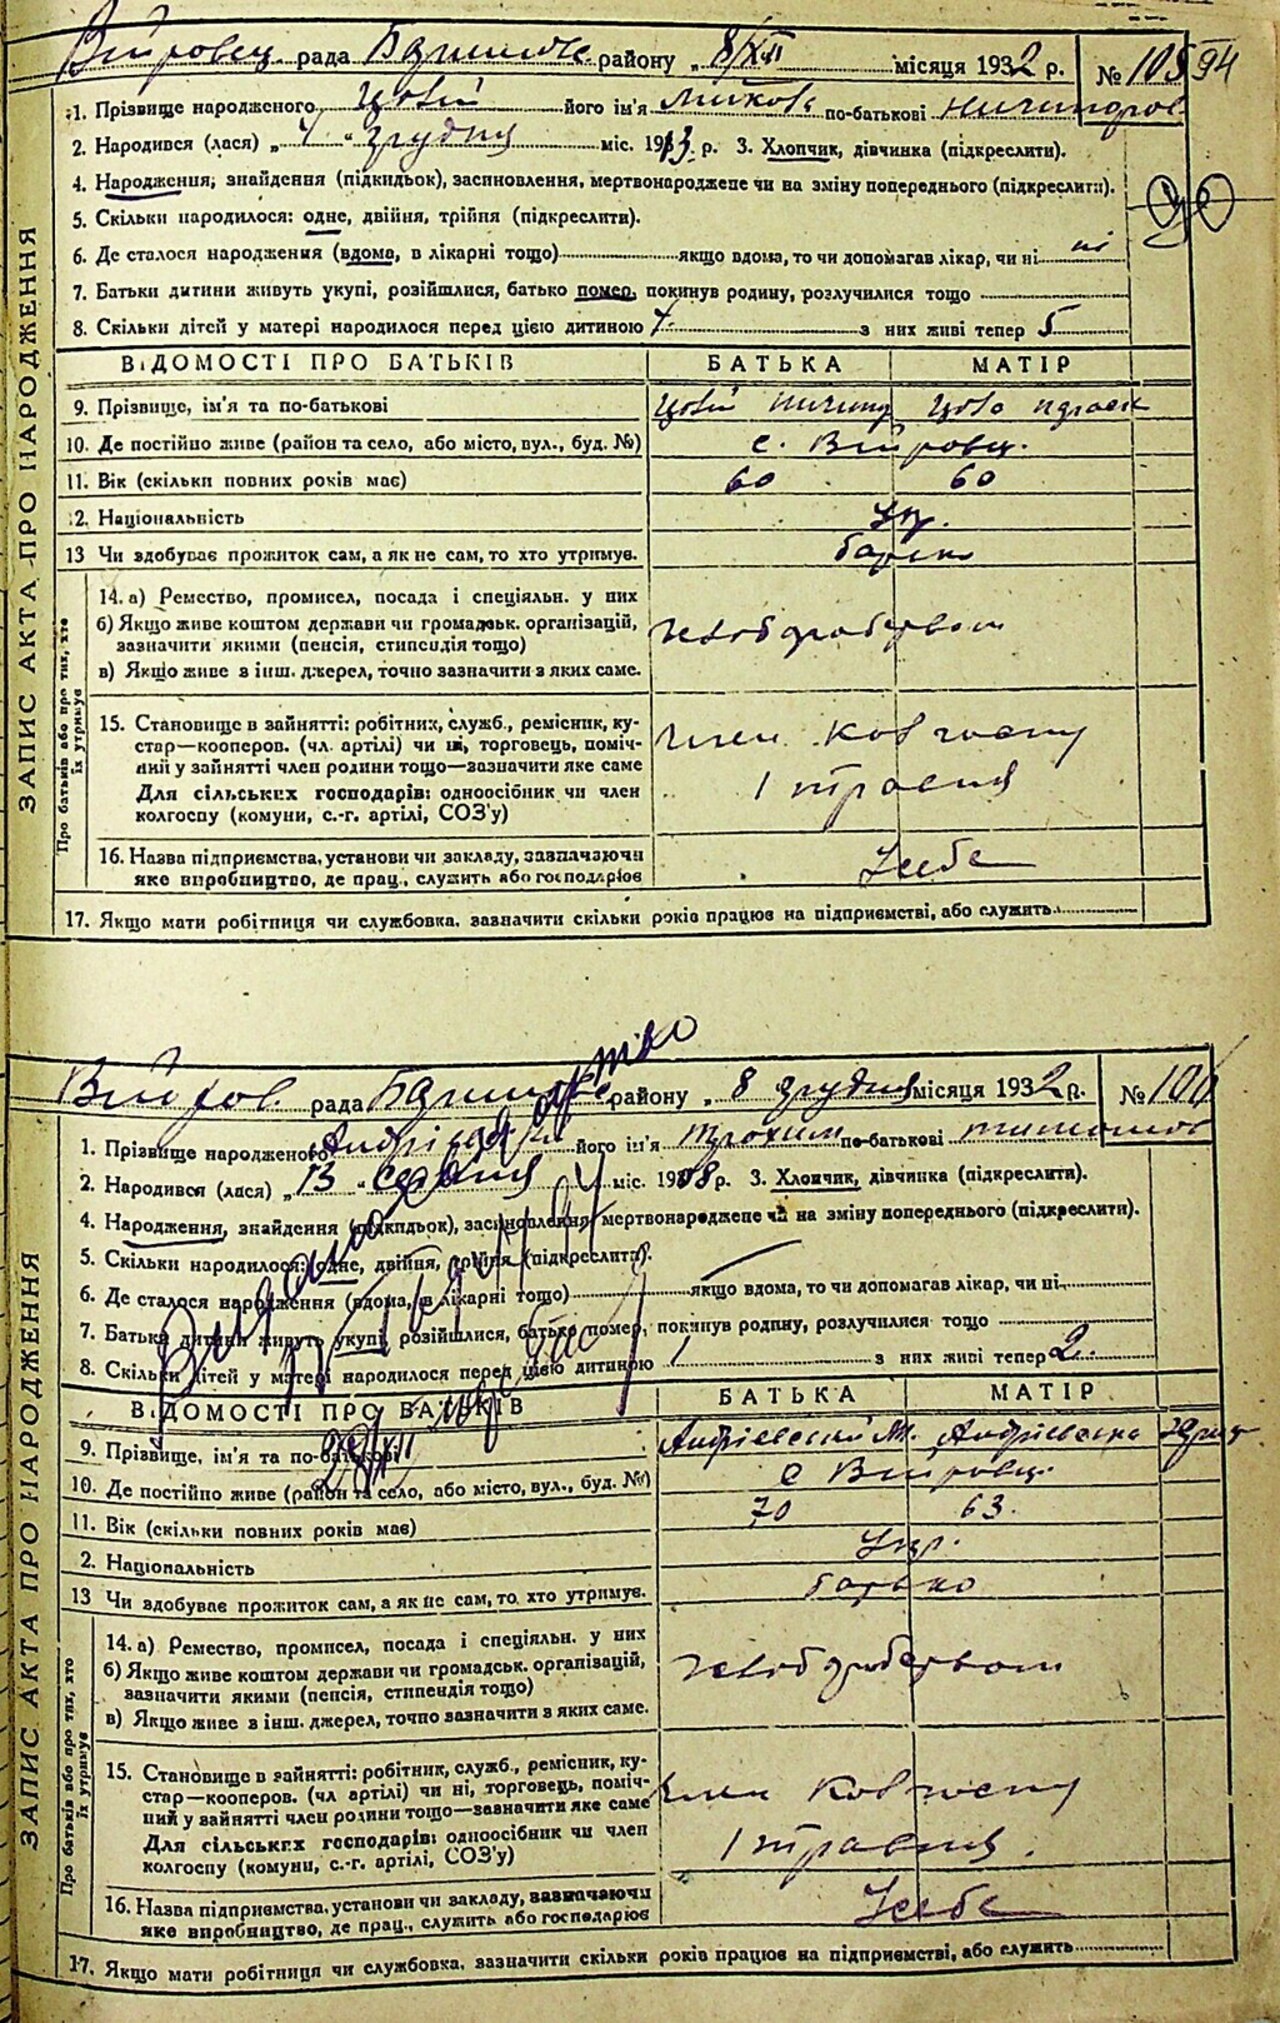 рада району „ 8/XII місяця 1932 р. № 105 94
1. Прізвище народженого Цовій його ім'я по-батькові
2. Народився (лася) „ “ грудня міс. 1913 р. 3. Хлопчик, дівчинка (підкреслити).
4. Народження, знайдення (підкидьок), засиновлення, мертвонароджене чи на зміну попереднього (підкреслити).
5. Скільки народилося: одне, двійня, трійня (підкреслити).
6. Де сталося народження (вдома, в лікарні тощо) якщо вдома, то чи допомагав лікар, чи ні ні
7. Батьки дитини живуть укупі, розійшлися, батько помер, покинув родину, розлучилися тощо
8. Скільки дітей у матері народилося перед цією дитиною 7 з них живі тепер 5
ВІДОМОСТІ ПРО БАТЬКІВ БАТЬКА МАТІР
9. Прізвище, ім'я та по-батькові Цовій
10. Де постійно живе (район та село, або місто, вул., буд. №) с.
11. Вік (скільки повних років має) 60 60
12. Національність Укр.
13 Чи здобуває прожиток сам, а як не сам, то хто утримує. батько
ЗАПИС АКТА ПРО НАРОДЖЕННЯ
Про батьків або про тих, хто їх утримує
14. а) Ремество, промисел, посада і спеціяльн. у них
б) Якщо живе коштом держави чи громадськ. організацій, хлібороборством
зазначити якими (пенсія, стипендія тощо)
в) Якщо живе з інш. джерел, точно зазначити з яких саме.
15. Становище в зайнятті: робітник, служб., ремісник, ку-
стар—кооперов. (чл. артілі) чи ні, торговець, поміч- член Ковгоспу
ний у зайнятті член родини тощо—зазначити яке саме
Для сільських господарів: одноосібник чи член 1 травня
колгоспу (комуни, с.-г. артілі, СОЗ'у)
16. Назва підприємства, установи чи закладу, зазначаючи
яке виробництво, де прац., служить або господарює У себе
17. Якщо мати робітниця чи службовка, зазначити скільки років працює на підприємстві, або служить
рада району „ 8 грудня місяця 1932 р. № 106
1. Прізвище народженого Андрієвський його ім'я Трохим по-батькові
2. Народився (лася) „ 13 “ серпня міс. 1908 р. 3. Хлопчик, дівчинка (підкреслити).
4. Народження, знайдення (підкидьок), засиновлення, мертвонароджене чи на зміну попереднього (підкреслити).
5. Скільки народилося: одне, двійня, трійня (підкреслити).
6. Де сталося народження (вдома, в лікарні тощо) якщо вдома, то чи допомагав лікар, чи ні
7. Батьки дитини живуть укупі, розійшлися, батько помер, покинув родину, розлучилися тощо
8. Скільки дітей у матері народилося перед цією дитиною 1 з них живі тепер 2.
ВІДОМОСТІ ПРО БАТЬКІВ БАТЬКА МАТІР
9. Прізвище, ім'я та по-батькові Андрієвський М. Андрієвська
10. Де постійно живе (район та село, або місто, вул., буд. №) с
11. Вік (скільки повних років має) 70 63.
2. Національність Укр.
13 Чи здобуває прожиток сам, а як не сам, то хто утримує. батько
ЗАПИС АКТА ПРО НАРОДЖЕННЯ
Про батьків або про тих, хто їх утримує
14. а) Ремество, промисел, посада і спеціяльн. у них
б) Якщо живе коштом держави чи громадськ. організацій, хлібороборством
зазначити якими (пенсія, стипендія тощо)
в) Якщо живе в інш. джерел, точно зазначити з яких саме.
15. Становище в зайнятті: робітник, служб., ремісник, ку-
стар—кооперов. (чл артілі) чи ні, торговець, поміч- член Ковгоспу
ний у зайнятті член родини тощо—зазначити яке саме
Для сільських господарів: одноосібник чи член 1 травня.
колгоспу (комуни, с.-г. артілі, СОЗ'у)
16. Назва підприємства, установи чи закладу, зазначаючи
яке виробництво, де прац., служить або господарює У себе
17. Якщо мати робітниця чи службовка, зазначити скільки років працює на підприємстві, або служить